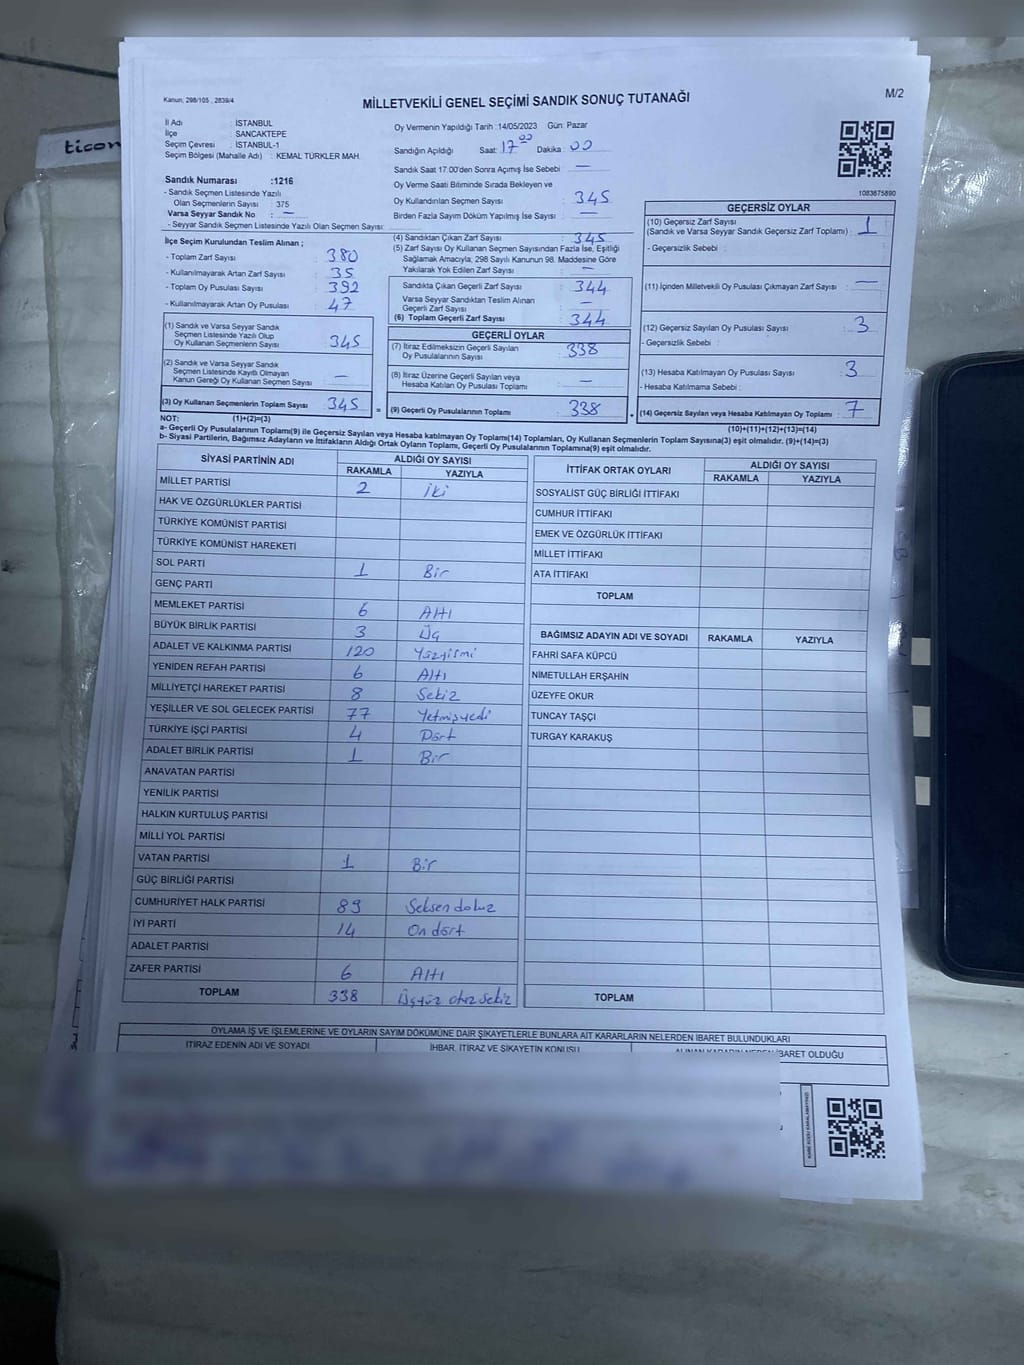 Kanun; 298/105 , 2839/4
MİLLETVEKİLİ GENEL SEÇİMİ SANDIK SONUÇ TUTANAĞI
M/2
ticon
İl Adı : İSTANBUL
İlçe SANCAKTEPE
Seçim Çevresi : İSTANBUL-1
Seçim Bölgesi (Mahalle Adı) : KEMAL TÜRKLER MAH.
Sandık Numarası :1216
- Sandık Seçmen Listesinde Yazılı
Olan Seçmenlerin Sayısı : 375
Varsa Seyyar Sandık No : —
- Seyyar Sandık Seçmen Listesinde Yazılı Olan Seçmen Sayısı:
Oy Vermenin Yapıldığı Tarih :14/05/2023 Gün: Pazar
Sandığın Açıldığı Saat: 17 00 Dakika : 00
Sandık Saat 17:00'den Sonra Açımış İse Sebebi : —
Oy Verme Saati Bitiminde Sırada Bekleyen ve
Oy Kullandırılan Seçmen Sayısı : 345
Birden Fazla Sayım Döküm Yapılmış İse Sayısı : —
1083675890
İlçe Seçim Kurulundan Teslim Alınan ;
- Toplam Zarf Sayısı : 380
- Kullanılmayarak Artan Zarf Sayısı : 35
- Toplam Oy Pusulası Sayısı : 392
- Kullanılmayarak Artan Oy Pusulası : 47
(1) Sandık ve Varsa Seyyar Sandık
Seçmen Listesinde Yazılı Olup
Oy Kullanan Seçmenlerin Sayısı : 345
(2) Sandık ve Varsa Seyyar Sandık
Seçmen Listesinde Kayıtlı Olmayan
Kanun Gereği Oy Kullanan Seçmen Sayısı : —
(3) Oy Kullanan Seçmenlerin Toplam Sayısı : 345 =
(4) Sandıktan Çıkan Zarf Sayısı : 345
(5) Zarf Sayısı Oy Kullanan Seçmen Sayısından Fazla İse, Eşitliği
Sağlamak Amacıyla; 298 Sayılı Kanunun 98. Maddesine Göre
Yakılarak Yok Edilen Zarf Sayısı : —
Sandıkta Çıkan Geçerli Zarf Sayısı : 344
Varsa Seyyar Sandıktan Teslim Alınan
Geçerli Zarf Sayısı : —
(6) Toplam Geçerli Zarf Sayısı : 344
GEÇERLİ OYLAR
(7) İtiraz Edilmeksizin Geçerli Sayılan
Oy Pusulalarının Sayısı : 338
(8) İtiraz Üzerine Geçerli Sayılan veya
Hesaba Katılan Oy Pusulası Toplamı : —
(9) Geçerli Oy Pusulalarının Toplamı : 338 +
GEÇERSİZ OYLAR
(10) Geçersiz Zarf Sayısı
(Sandık ve Varsa Seyyar Sandık Geçersiz Zarf Toplamı) : 1
- Geçersizlik Sebebi :
(11) İçinden Milletvekili Oy Pusulası Çıkmayan Zarf Sayısı : —
(12) Geçersiz Sayılan Oy Pusulası Sayısı : 3
- Geçersizlik Sebebi :
(13) Hesaba Katılmayan Oy Pusulası Sayısı : 3
- Hesaba Katılmama Sebebi :
(14) Geçersiz Sayılan veya Hesaba Katılmayan Oy Toplamı : 7
NOT: (1)+(2)=(3) (10)+(11)+(12)+(13)=(14)
a- Geçerli Oy Pusulalarının Toplamı(9) ile Geçersiz Sayılan veya Hesaba katılmayan Oy Toplamı(14) Toplamları, Oy Kullanan Seçmenlerin Toplam Sayısına(3) eşit olmalıdır. (9)+(14)=(3)
b- Siyasi Partilerin, Bağımsız Adayların ve İttifakların Aldığı Ortak Oyların Toplamı, Geçerli Oy Pusulalarının Toplamına(9) eşit olmalıdır.
SİYASİ PARTİNİN ADI ALDIĞI OY SAYISI
RAKAMLA YAZIYLA
MİLLET PARTİSİ 2 iki
HAK VE ÖZGÜRLÜKLER PARTİSİ
TÜRKİYE KOMÜNİST PARTİSİ
TÜRKİYE KOMÜNİST HAREKETİ
SOL PARTİ 1 Bir
GENÇ PARTİ
MEMLEKET PARTİSİ 6 Altı
BÜYÜK BİRLİK PARTİSİ 3 Üç
ADALET VE KALKINMA PARTİSİ 120 Yüzyirmi
YENİDEN REFAH PARTİSİ 6 Altı
MİLLİYETÇİ HAREKET PARTİSİ 8 Sekiz
YEŞİLLER VE SOL GELECEK PARTİSİ 77 Yetmişyedi
TÜRKİYE İŞÇİ PARTİSİ 4 Dört
ADALET BİRLİK PARTİSİ 1 Bir
ANAVATAN PARTİSİ
YENİLİK PARTİSİ
HALKIN KURTULUŞ PARTİSİ
MİLLİ YOL PARTİSİ
VATAN PARTİSİ 1 Bir
GÜÇ BİRLİĞİ PARTİSİ
CUMHURİYET HALK PARTİSİ 89 Seksen dokuz
İYİ PARTİ 14 On dört
ADALET PARTİSİ
ZAFER PARTİSİ 6 Altı
TOPLAM 338 Üçyüz otuz sekiz
İTTİFAK ORTAK OYLARI ALDIĞI OY SAYISI
RAKAMLA YAZIYLA
SOSYALİST GÜÇ BİRLİĞİ İTTİFAKI
CUMHUR İTTİFAKI
EMEK VE ÖZGÜRLÜK İTTİFAKI
MİLLET İTTİFAKI
ATA İTTİFAKI
TOPLAM
BAĞIMSIZ ADAYIN ADI VE SOYADI RAKAMLA YAZIYLA
FAHRİ SAFA KÜPCÜ
NİMETULLAH ERŞAHİN
ÜZEYFE OKUR
TUNCAY TAŞÇI
TURGAY KARAKUŞ
TOPLAM
OYLAMA İŞ VE İŞLEMLERİNE VE OYLARIN SAYIM DÖKÜMÜNE DAİR ŞİKAYETLERLE BUNLARA AİT KARARLARIN NELERDEN İBARET BULUNDUKLARI
İTİRAZ EDENİN ADI VE SOYADI İHBAR, İTİRAZ VE ŞİKAYETİN KONUSU ALINAN KARARIN NEDEN İBARET OLDUĞU